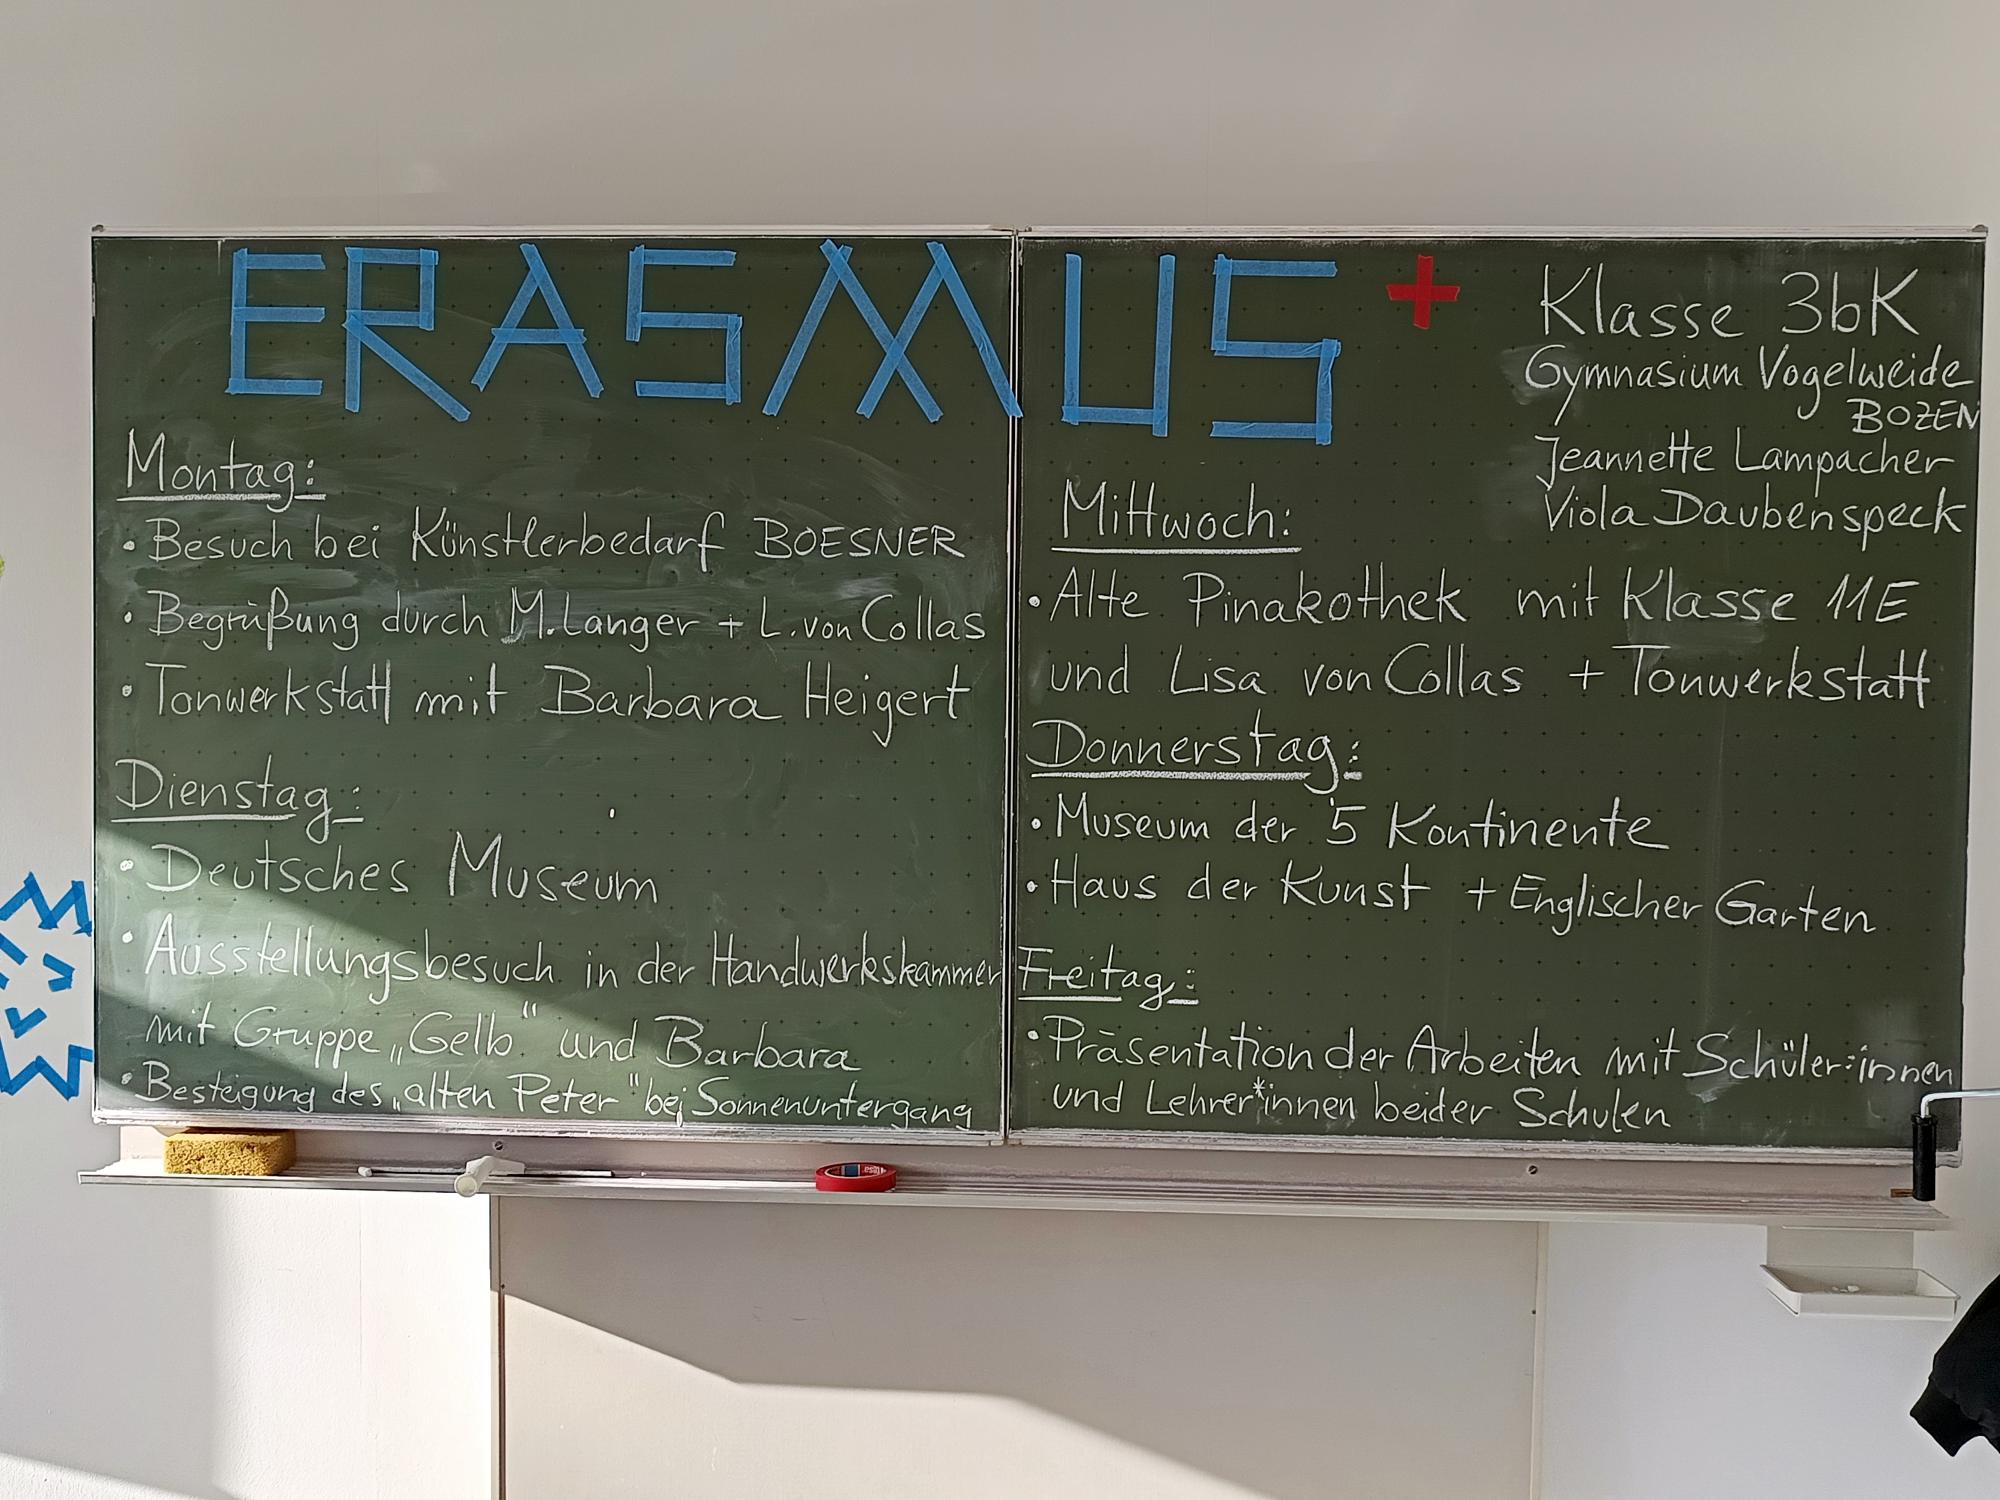 ERASMUS+
Klasse 3bK
Gymnasium Vogelweide
BOZEN
Jeannette Lampacher
Viola Daubenspeck
Montag:
• Besuch bei Künstlerbedarf BOESNER
• Begrüßung durch M. Langer + L. von Collas
• Tonwerkstatt mit Barbara Heigert
Dienstag:
• Deutsches Museum
• Ausstellungsbesuch in der Handwerkskammer
mit Gruppe „Gelb“ und Barbara
• Besteigung des „alten Peter“ bei Sonnenuntergang
Mittwoch:
• Alte Pinakothek mit Klasse 11E
und Lisa von Collas + Tonwerkstatt
Donnerstag:
• Museum der 5 Kontinente
• Haus der Kunst + Englischer Garten
Freitag:
• Präsentation der Arbeiten mit Schüler:innen
und Lehrer*innen beider Schulen
tesa